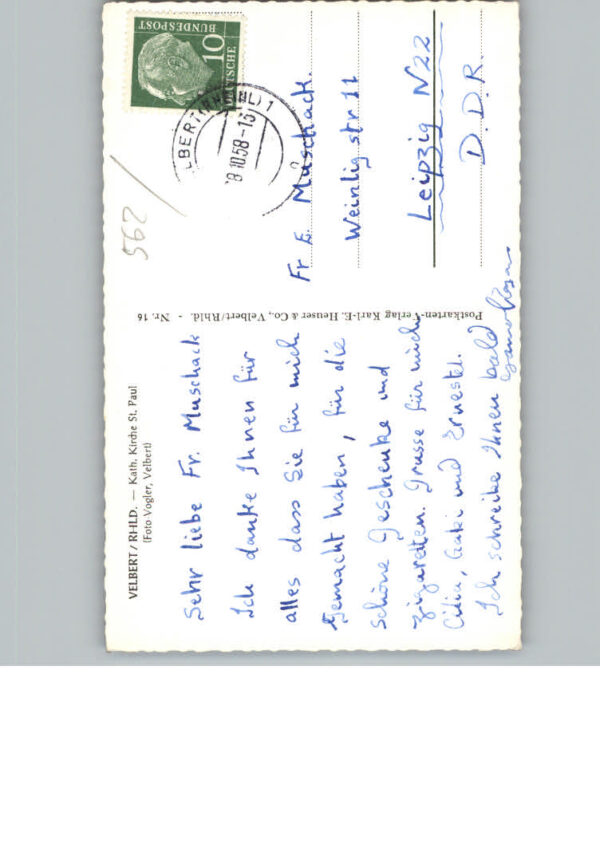 VELBERT / RHLD. — Kath. Kirche St. Paul
(Foto Vogler, Velbert)
Sehr liebe Fr. Muschack
Ich danke Ihnen für
alles dass Sie für mich
Gemacht haben, für die
Schöne Geschenke und
Zigaretten. Grusse für mich
Cilia, Gabi und Ernestel.
Ich schreibe Ihnen bald
Postkarten-Verlag Karl-E. Heuser & Co., Velbert/Rhld. - Nr. 16
562
DEUTSCHE
BUNDESPOST
10
LBERT (RHEINL) 1
10.58-13
Fr E. Muschack.
Weinlig str 11
Leipzig N22
D.D.R.